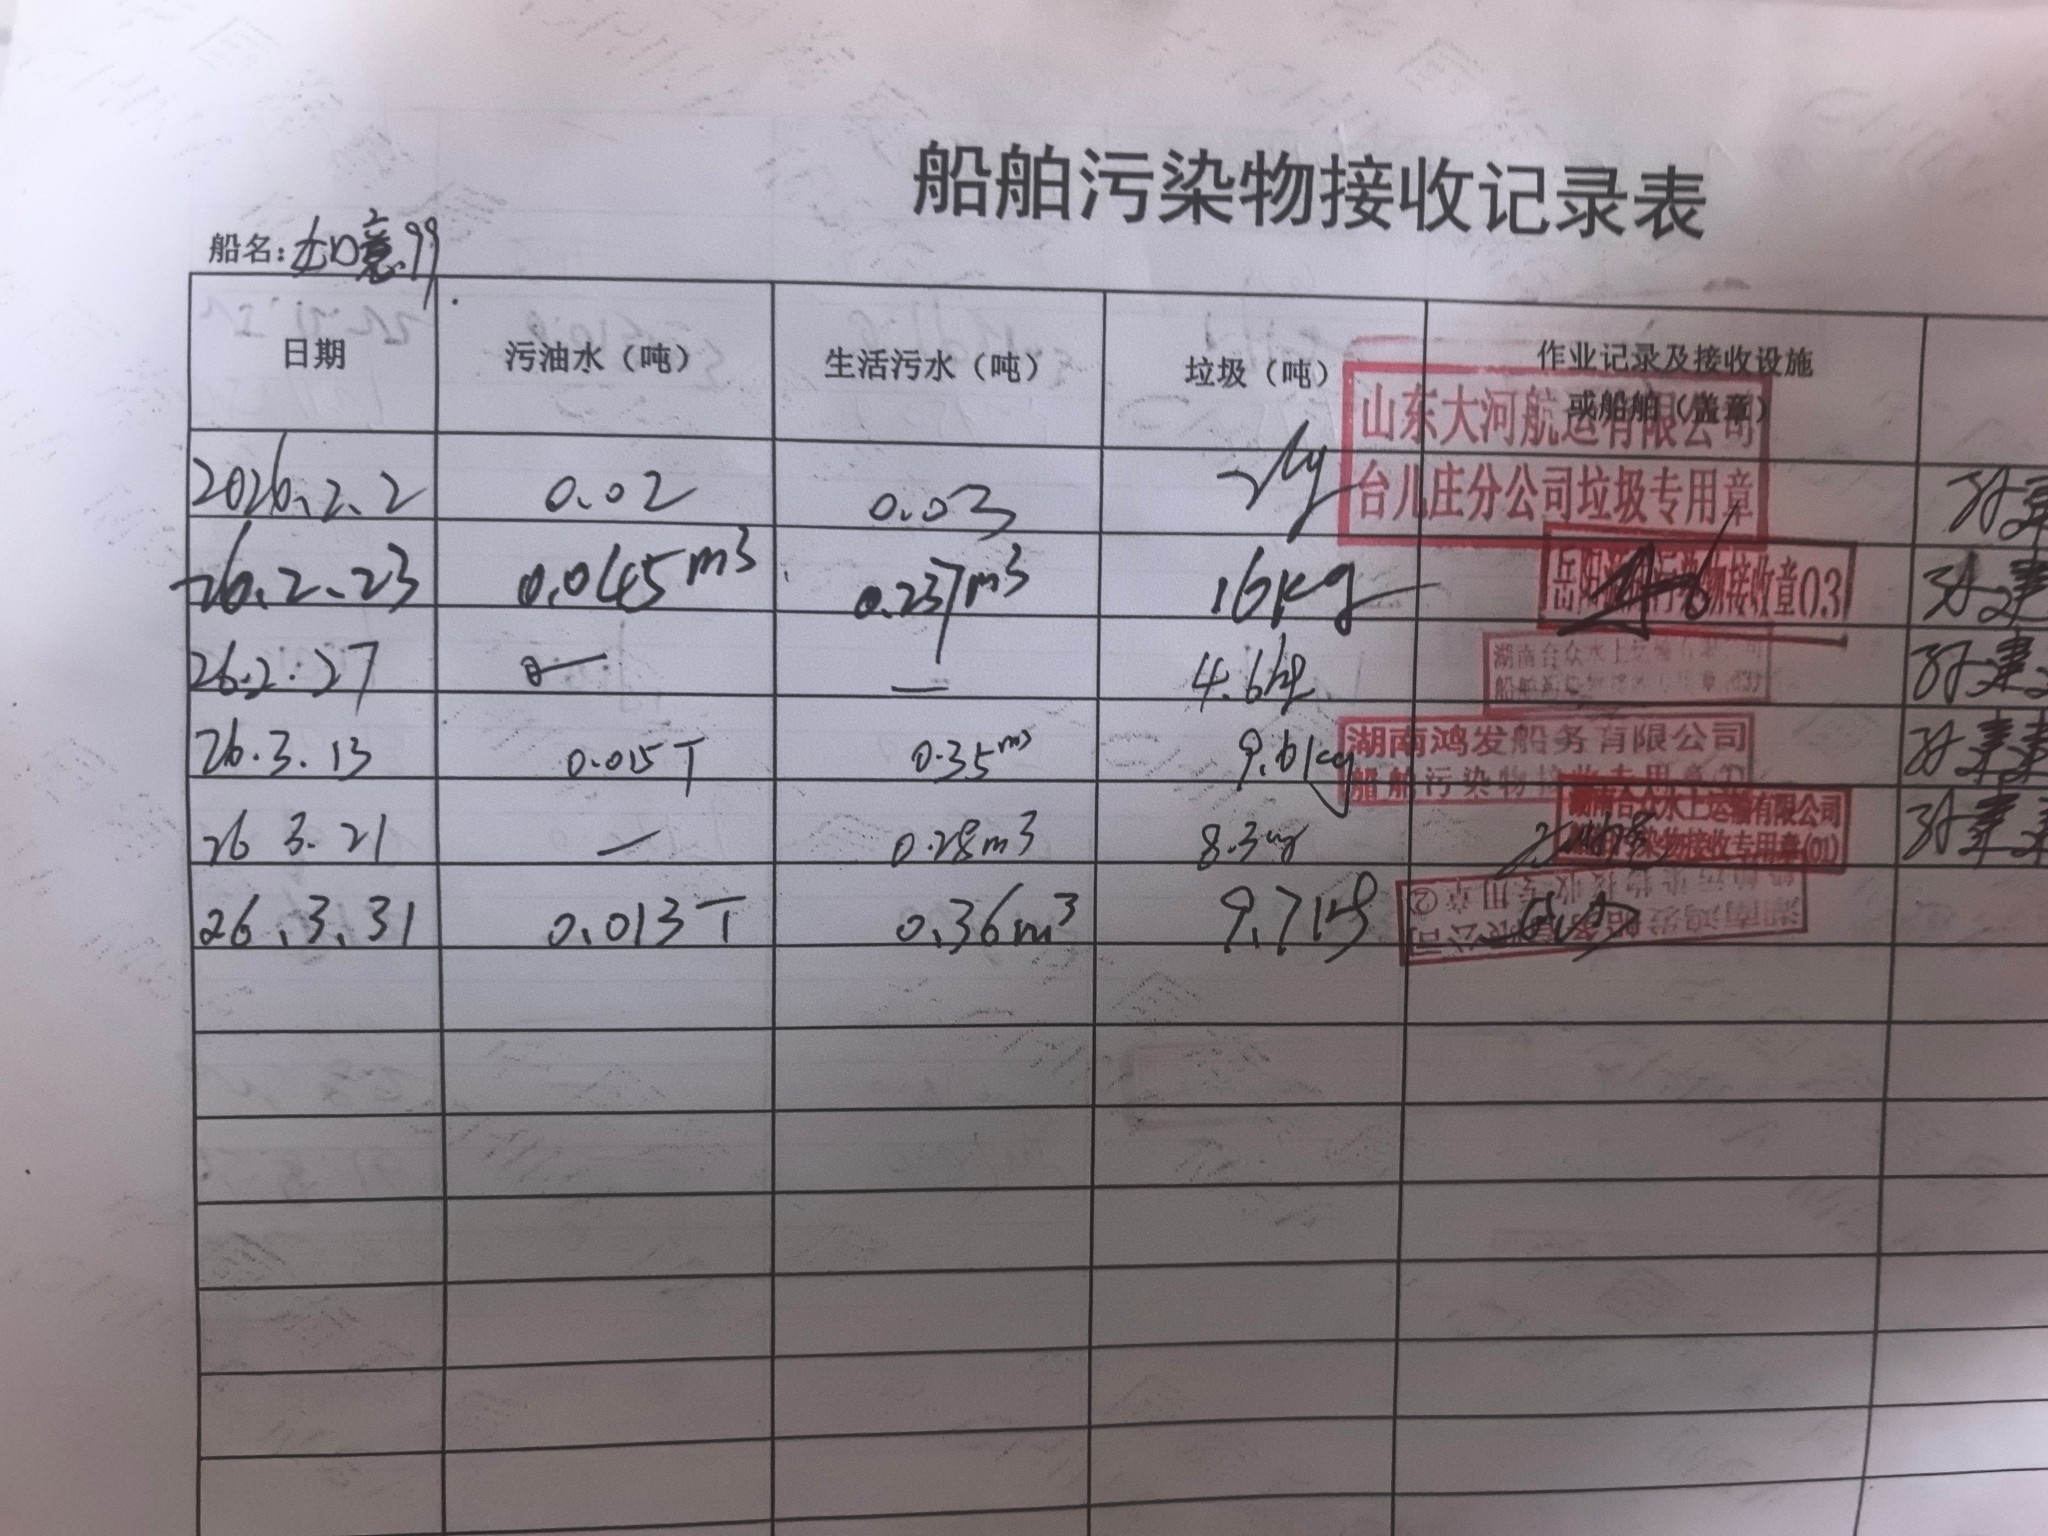 船舶污染物接收记录表
船名：如意99
日期 污油水（吨） 生活污水（吨） 垃圾（吨） 作业记录及接收设施
或船舶（盖章）
山东大河航运有限公司
台儿庄分公司垃圾专用章
2026.2.2 0.02 0.03 2kg
26.2.23 0.045m³ 0.237m³ 16kg
岳阳 污染物接收章03
26.2.27 — — 4.6kg
湖南合众水上运输有限公司
26.3.13 0.015T 0.35m³ 9.6kg
湖南鸿发船务有限公司
船舶污染物接收专用章①
26 3.21 — 0.28m³ 8.3kg
湖南合众水上运输有限公司
污染物接收专用章(01)
26.3.31 0.013T 0.36m³ 9.7kg
湖南鸿发船务有限公司
船舶污染物接收专用章②